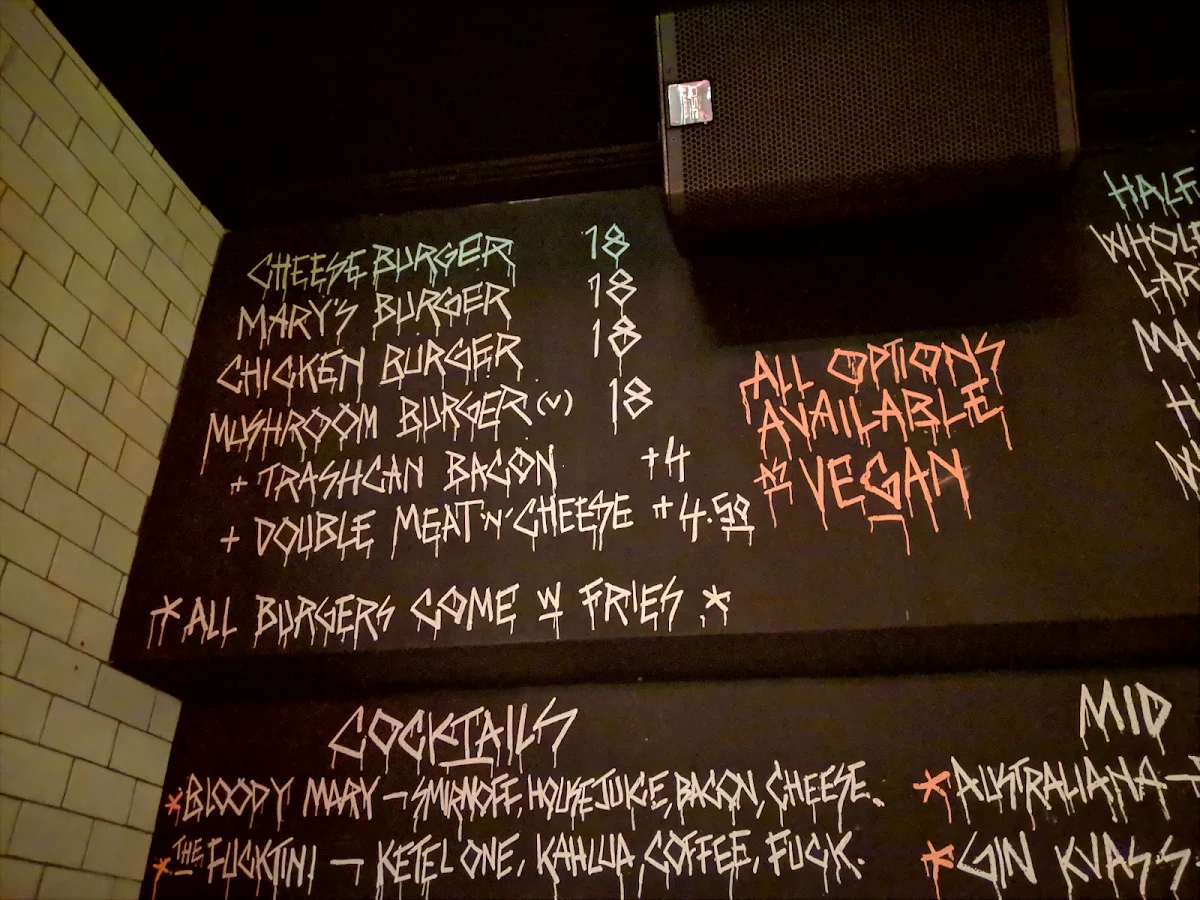 CHEESE BURGER 18
MARY'S BURGER 18
CHICKEN BURGER 18
MUSHROOM BURGER (V) 18
+ TRASHCAN BACON +4
+ DOUBLE MEAT 'N' CHEESE +4.50
*ALL BURGERS COME W FRIES *
ALL OPTIONS
AVAILABLE
AS VEGAN
HALF
WHOLE
LAR
MA
H
COCKTAILS
*BLOODY MARY – SMIRNOFF, HOUSE JUICE, BACON, CHEESE.
*THE FUCKTINI – KETEL ONE, KAHLUA, COFFEE, FUCK.
MID
*AUSTRALIANA –
*GIN KVASS